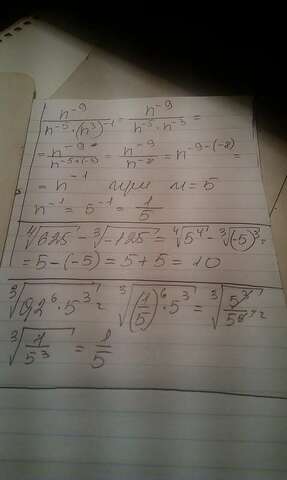 n⁻⁹ / (n⁻⁵ · (n³)⁻¹) = n⁻⁹ / (n⁻⁵ · n⁻³) =
= n⁻⁹ / n⁻⁵⁺⁽⁻³⁾ = n⁻⁹ / n⁻⁸ = n⁻⁹⁻⁽⁻⁸⁾ =
= n⁻¹ при n = 5
n⁻¹ = 5⁻¹ = 1/5
⁴√625 - ³√-125 = ⁴√5⁴ - ³√(-5)³ =
= 5 - (-5) = 5 + 5 = 10
³√0,2⁶ · 5³ = ³√(1/5)⁶ · 5³ = ³√5³/5⁶ =
³√1/5³ = 1/5